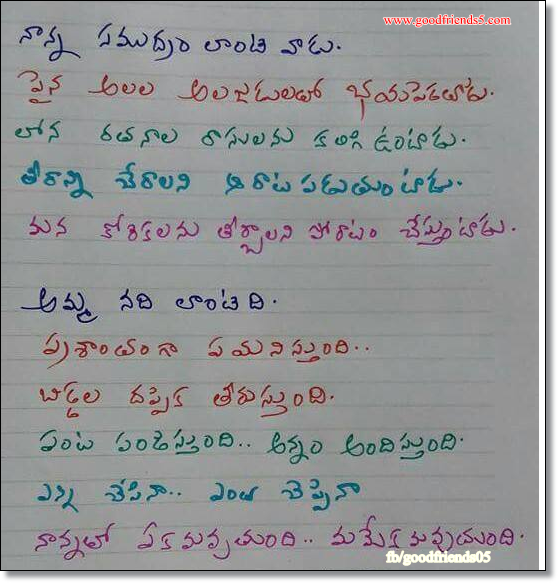 www.goodfriends5.com
నాన్న సముద్రం లాంటి వాడు.
పైన అలల అలజడులతో భయపెడతాడు.
లోన రతనాల రాసులను కలిగి ఉంటాడు.
తీరాన్ని చేరాలని ఆరాట పడుతుంటాడు.
మన కోరికలను తీర్చాలని పోరాటం చేస్తుంటాడు.
అమ్మ నది లాంటిది.
ప్రశాంతంగా పయనిస్తుంది..
బిడ్డల దప్పిక తీరుస్తుంది.
పంట పండిస్తుంది.. అన్నం అందిస్తుంది.
ఎన్ని చేసినా.. ఎంత చెప్పినా
నాన్నలో ఏకమవ్వుతుంది.. మమేకమవ్వుతుంది.
fb/goodfriends05